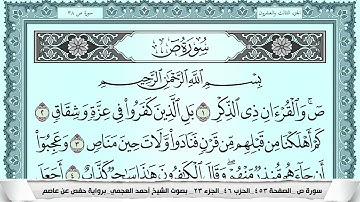 الجزء الثالث والعشرون
سورة ص ٣٨
سُورَةُ صٓ
بِسْمِ اللَّهِ الرَّحْمَٰنِ الرَّحِيمِ
صٓ ۚ وَالْقُرْءَانِ ذِي الذِّكْرِ ١ بَلِ الَّذِينَ كَفَرُوا فِي عِزَّةٍ وَشِقَاقٍ ٢
كَمْ أَهْلَكْنَا مِن قَبْلِهِم مِّن قَرْنٍ فَنَادَوا وَّلَاتَ حِينَ مَنَاصٍ ٣ وَعَجِبُوا
أَن جَاءَهُم مُّنذِرٌ مِّنْهُمْ ۖ وَقَالَ الْكَافِرُونَ هَٰذَا سَاحِرٌ كَذَّابٌ ٤
سورة ص _ الصفحة ٤٥٣ _ الحزب ٤٦ _ الجزء ٢٣ _ بصوت الشيخ أحمد العجمي _ برواية حفص عن عاصم